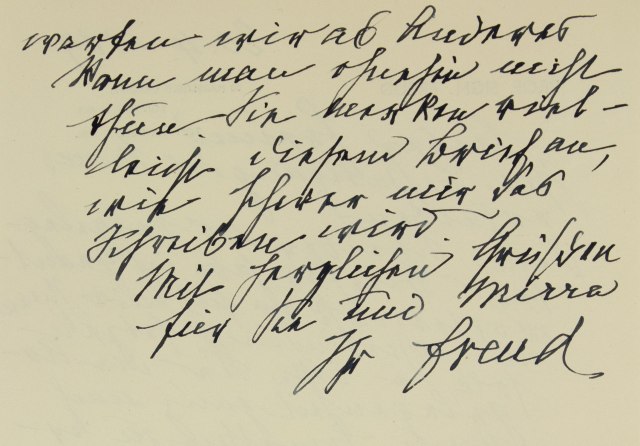 warten wir ab Anderes
kann man ohnehin nicht
thun. Sie merken viel-
leicht diesem Brief an,
wie schwer mir das
Schreiben wird.
Mit herzlichen Grüßen
für Sie und Mirra
Ihr Freud